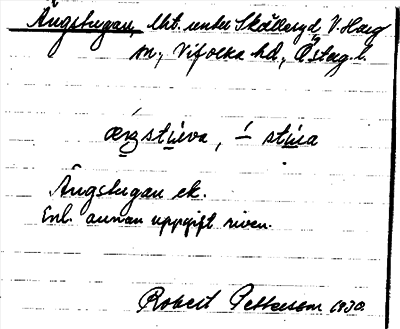 Ängstugan, lht. under Skålleryd, V. Harg
sn, Vifolka hd, Östergl.
æŋstu̲va, ´– stu̲a
Ängstugan ek.
Enl. annan uppgift riven.
Robert Pettersson 1930.